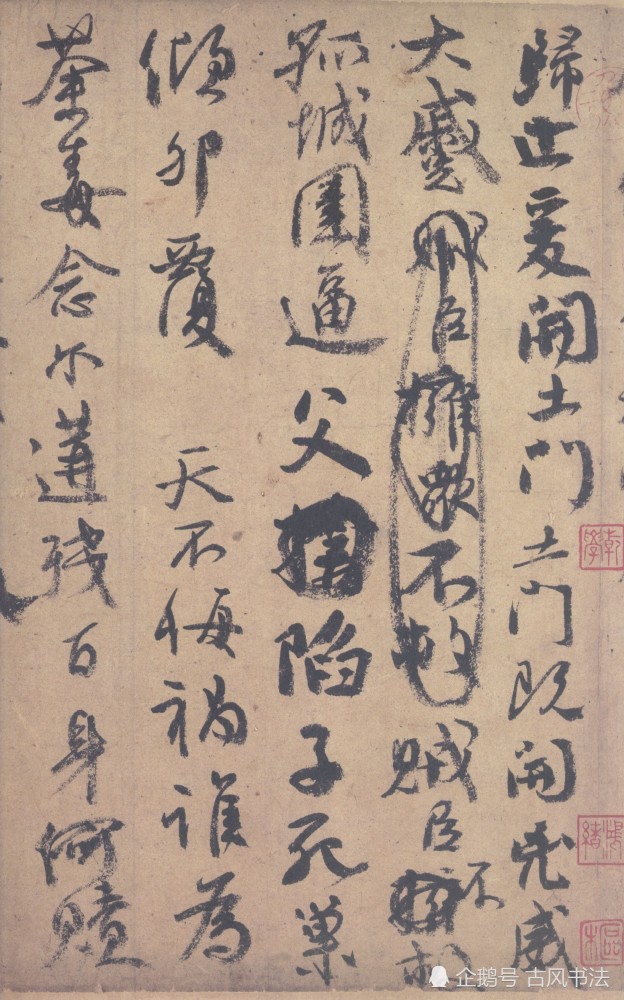 歸止爰開土門土門既開兇威
大蹙賊臣擁衆不救賊臣不救
孤城圍逼父陷子死巢
傾卵覆 天不悔禍誰為
荼毒念尔遘殘百身何贖
乾學
企鹅号 古风书法